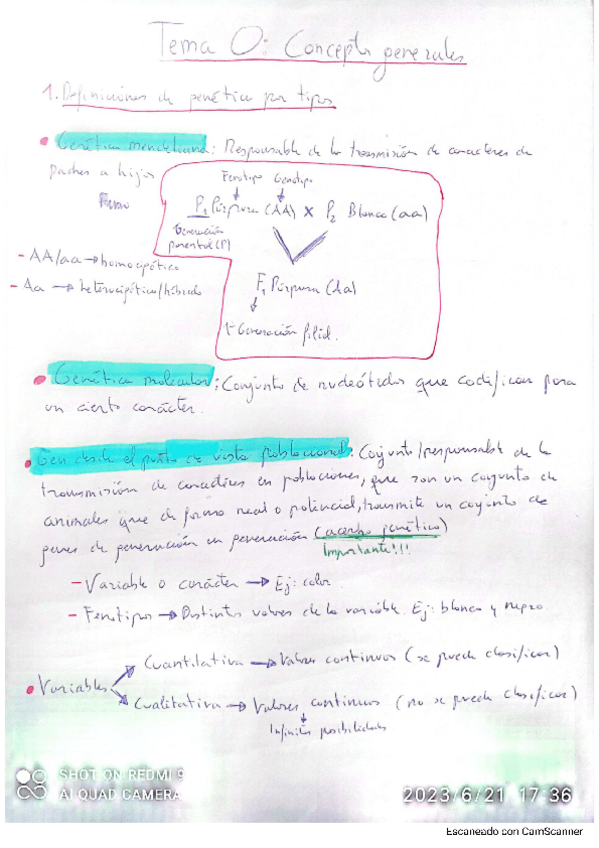 Tema 0: Conceptos generales
1. Definiciones de genética por tipos
• Genética mendeliana: Responsable de la transmisión de caracteres de
padres a hijos
Fenotipo Genotipo
P1 Púrpura (AA) x P2 Blanca (aa)
Generación
parental (P)
- AA/aa → homocigótico
- Aa → heterocigótico/híbrido
F1 Púrpura (Aa)
1ª Generación filial.
• Genética molecular: Conjunto de nucleótidos que codifican para
un cierto carácter.
• Gen desde el punto de vista poblacional: Conjunto/responsable de la
transmisión de caracteres en poblaciones, que son un conjunto de
animales que de forma real o potencial, transmite un conjunto de
genes de generación en generación (acerbo genético)
Importante!!!
- Variable o carácter → Ej: color
- Fenotipos → Distintos valores de la variable. Ej: blanco y negro
• Variables
Cuantitativa → Valores continuos (se puede clasificar)
Cualitativa → Valores continuos (no se puede clasificar)
Infinitas posibilidades
SHOT ON REDMI 9
AI QUAD CAMERA
2023/6/21 17:36
Escaneado con CamScanner